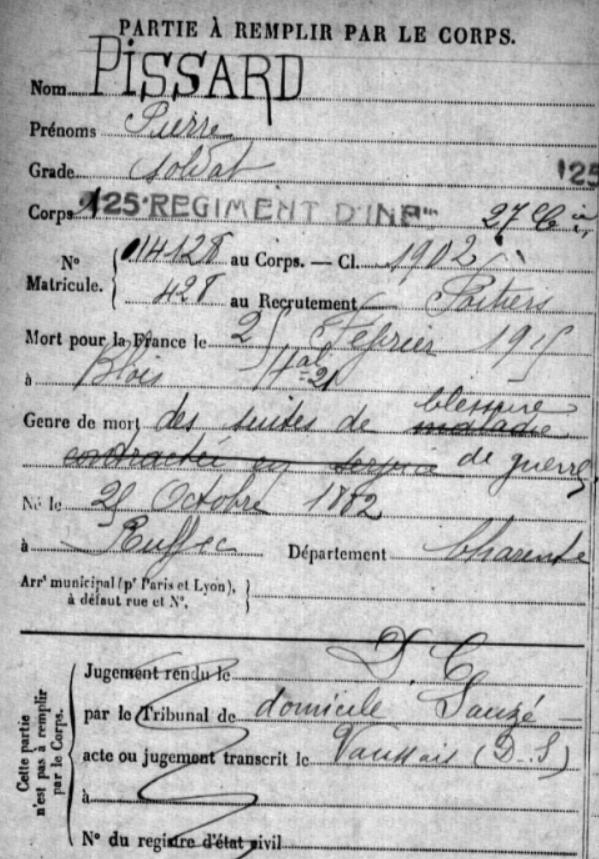 PARTIE À REMPLIR PAR LE CORPS.
Nom PISSARD
Prénoms Pierre
Grade soldat
125
Corps 125e REGIMENT D'INFie 27e Cie
No Matricule. { 014128 au Corps. — Cl. 1902
428 au Recrutement Poitiers
Mort pour la France le 25 Février 1915
à Blois Hal 21
Genre de mort des suites de maladie blessure
contractée en service de guerre
Né le 25 Octobre 1882
à Ruffec Département Charente
Arrt municipal (pr Paris et Lyon),
à défaut rue et No.
Cette partie n'est pas à remplir par le Corps.
Jugement rendu le D. C.
par le Tribunal de domicile Sauzé
acte ou jugement transcrit le Vaussais (D.S)
à
No du registre d'état civil